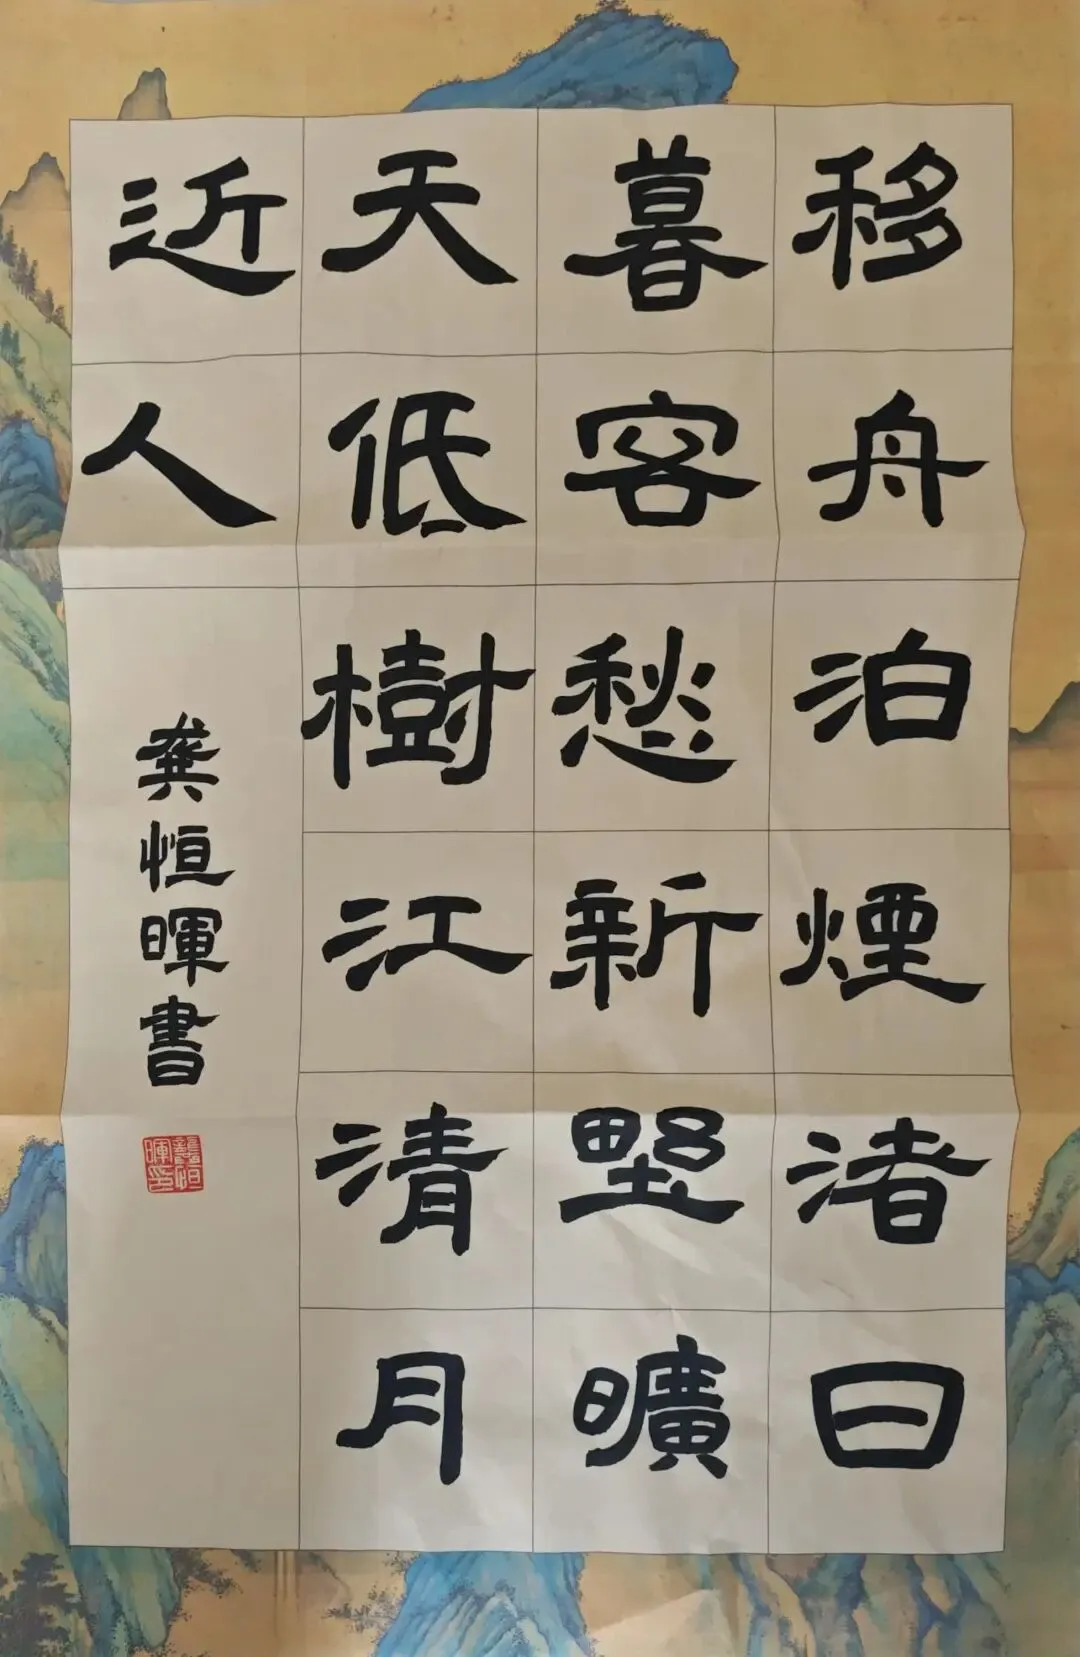 移舟泊煙渚日
暮客愁新野曠
天低樹江清月
近人
龚恒暉書
龔恒暉印